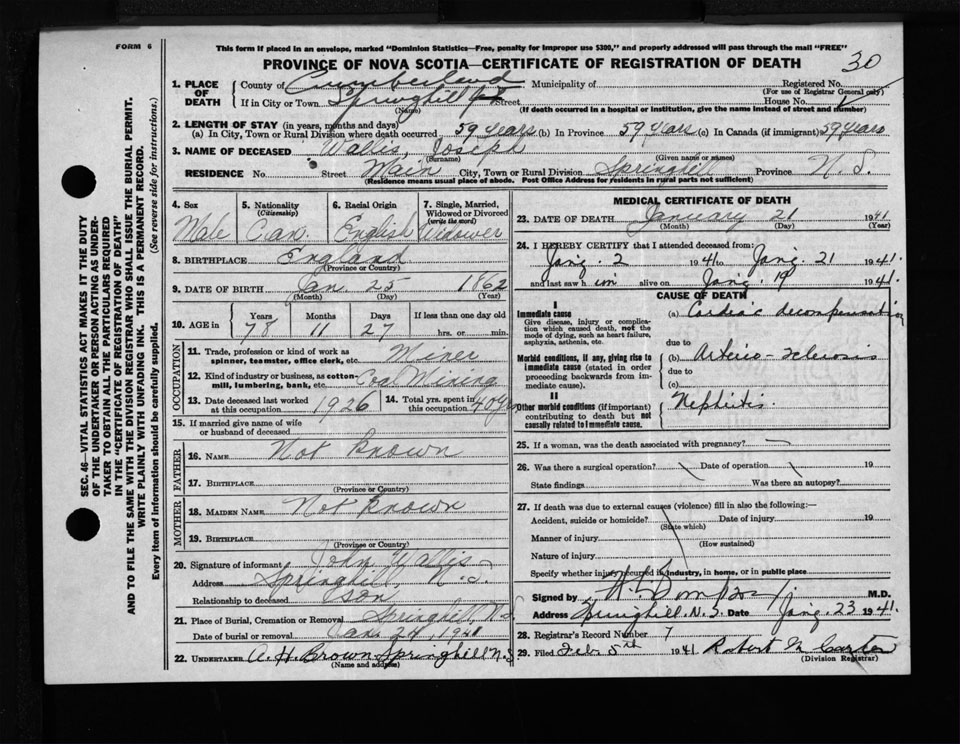 FORM 6
This form if placed in an envelope, marked "Dominion Statistics—Free, penalty for improper use $300," and properly addressed will pass through the mail "FREE"
PROVINCE OF NOVA SCOTIA—CERTIFICATE OF REGISTRATION OF DEATH 30
1. PLACE OF DEATH County of Cumberland Municipality of Registered No.
(For use of Registrar General only)
If in City or Town Springhill Street House No.
(Name) (If death occurred in a hospital or institution, give the name instead of street and number)
2. LENGTH OF STAY (in years, months and days)
(a) In City, Town or Rural Division where death occurred 59 years (b) In Province 59 years (c) In Canada (if immigrant) 59 years
3. NAME OF DECEASED Wallis, Joseph
(Surname) (Given name or names)
RESIDENCE No. Street Main City, Town or Rural Division Springhill Province N. S.
(Residence means usual place of abode. Post Office Address for residents in rural parts not sufficient)
4. Sex Male
5. Nationality (Citizenship) Can.
6. Racial Origin English
7. Single, Married, Widowed or Divorced (write the word) Widower
8. BIRTHPLACE England
(Province or Country)
9. DATE OF BIRTH Jan. 25 1862
(Month) (Day) (Year)
10. AGE in Years 78 Months 11 Days 27 If less than one day old hrs. or min.
OCCUPATION
11. Trade, profession or kind of work as spinner, teamster, office clerk, etc. Miner
12. Kind of industry or business, as cotton-mill, lumbering, bank, etc. Coal Mining
13. Date deceased last worked at this occupation 1926
14. Total yrs. spent in this occupation 40 yrs
15. If married give name of wife or husband of deceased
FATHER
16. NAME Not known
17. BIRTHPLACE
(Province or Country)
MOTHER
18. MAIDEN NAME Not known
19. BIRTHPLACE
(Province or Country)
20. Signature of informant John Wallis
Address Springhill, N.S.
Relationship to deceased son
21. Place of Burial, Cremation or Removal Springhill, N.S.
Date of burial or removal Jan. 24, 1941
22. UNDERTAKER A. H. Brown Springhill N.S.
(Name and address)
MEDICAL CERTIFICATE OF DEATH
23. DATE OF DEATH January 21 1941
(Month) (Day) (Year)
24. I HEREBY CERTIFY that I attended deceased from:
Jany. 2 1941 to Jany. 21 1941.
and last saw h im alive on Jany. 19 1941.
CAUSE OF DEATH
I
Immediate cause
Give disease, injury or complication which caused death, not the mode of dying, such as heart failure, asphyxia, asthenia, etc.
(a) Cardiac decompensation
due to
Morbid conditions, if any, giving rise to immediate cause (stated in order proceeding backwards from immediate cause).
(b) Arterio-sclerosis
due to
(c)
II
Other morbid conditions (if important) contributing to death but not causally related to immediate cause.
Nephritis.
25. If a woman, was the death associated with pregnancy?
26. Was there a surgical operation? Date of operation 19
State findings Was there an autopsy?
27. If death was due to external causes (violence) fill in also the following:—
Accident, suicide or homicide? Date of injury 19
(State which)
Manner of injury
(How sustained)
Nature of injury
Specify whether injury occurred in industry, in home, or in public place
Signed by M.D.
Address Springhill N.S. Date Jany. 23 1941.
28. Registrar's Record Number 7
29. Filed Feb 5th 1941 Robert M Carter
(Division Registrar)
SEC. 46—VITAL STATISTICS ACT MAKES IT THE DUTY
OF THE UNDERTAKER OR PERSON ACTING AS UNDER-
TAKER TO OBTAIN ALL THE PARTICULARS REQUIRED
IN THE "CERTIFICATE OF REGISTRATION OF DEATH"
AND TO FILE THE SAME WITH THE DIVISION REGISTRAR WHO SHALL ISSUE THE BURIAL PERMIT.
WRITE PLAINLY WITH UNFADING INK. THIS IS A PERMANENT RECORD.
Every Item of Information should be carefully supplied. (See reverse side for instructions.)